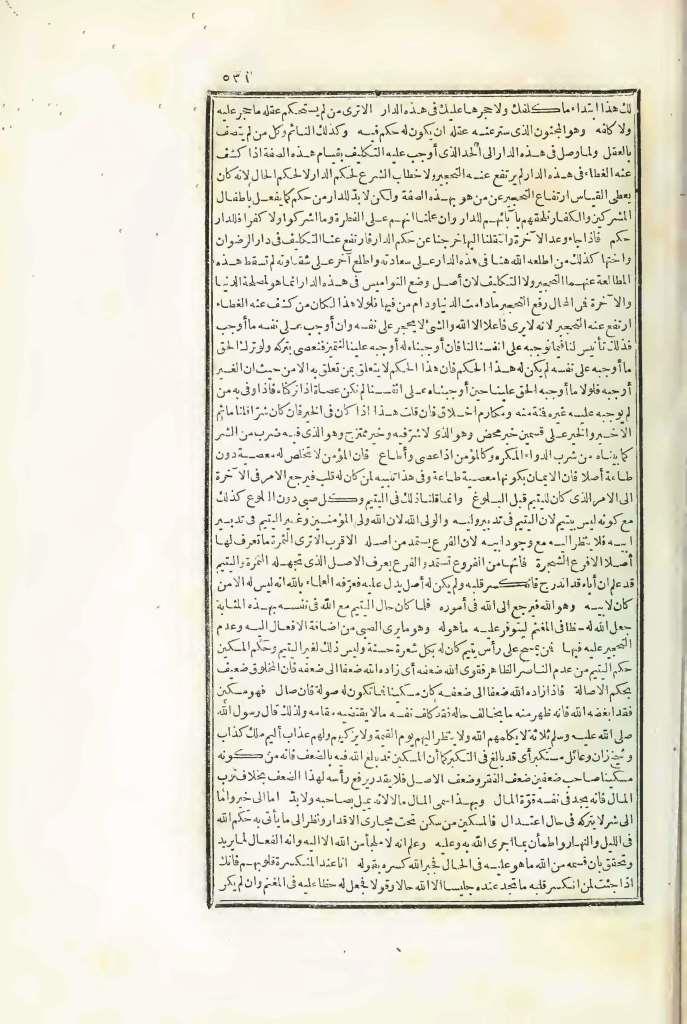 ٥٣١
لك هذا ابتداء ما كلفك ولا حجر هاعليك فى هذه الدار الاترى من لم يستحكم عقله ما حجر عليه
ولا كلفه وهو المجنون الذى ستر عنه عقله ان يكون له حكم فيه وكذلك النائم وكل من لم يتصف
بالعقل ولما وصل فى هذه الدار الى الحد الذى أوجب عليه التكليف بقيام هذه الصفة اذا كشف
عنه الغطاء فى هذه الدار لم يرتفع عنه التحجير ولا خطاب الشرع لحكم الدار لا لحكم الحال لانه كان
يعطى القياس ارتفاع التحجير عن من هو بهذه الصفة ولكن لابد للدار من حكم كما يفعل بأطفال
المشركين والكفار نلحقهم بآبائهم للدار وان علمنا انهم على الفطرة وما اشركوا ولا كفروا فللدار
حكم فاذا جاء وعد الآخرة وانتقلنا اليها خرجنا عن حكم الدار فارتفع عنا التكليف فى دار الرضوان
واختها كذلك من اطلعه الله هنا فى هذه الدار على سعادته واطلع آخر على شقاوته لم تسقط هذه
المطالعة عنهما التحجير ولا التكليف لان أصل وضع النواميس فى هذه الدار انما هو لمصلحة الدنيا
والآخرة فن المحال رفع التحجير مادامت الدنيا ودام من فيها فلولا هذا لكان من كشف عنه الغطاء
ارتفع عنه التحجير لانه لا يرى فاعلا الا الله والشئ لا يحجر على نفسه وان أوجب على نفسه ما أوجب
فذلك تأنيس لنا فيما نوجبه على انفسنا لنا فان أوجبناه له أوجبه علينا لتتميز فنعصى بتركه ولو ترك الحق
ما أوجبه على نفسه لم يكن له هذا الحكم فان هذا الحكم لا يتعلق بمن تعلق به الا من حيث ان الغير
أوجبه فلولا ما أوجبه الحق علينا حين أوجبناه على انفسنا لم نكن عصاة اذا تركناه فاذا وفى به من
لم يوجبه عليه غيره فنة منه ومكارم اخلاق فان قلت هذا اذا كان فى الخير فان كان شرا قلنا ما ثم
الاخير والخير على قسمين خير محض وهو الذى لا شر فيه وخير ممتزج وهو الذى فيه ضرب من الشر
كما بيناه من شرب الدواء المكره وكالمؤمن اذا عصى وأطاع فان المؤمن لا تخلص له معصية دون
طاعة أصلا فان الايمان بكونها معصية طاعة وفى هذا تنبيه لمن كان له قلب فيرجع الامر فى الآخرة
الى الامر الذى كان لليتيم قبل البلوغ وانما قلنا ذلك فى اليتيم وكل صبى دون البلوغ كذلك
مع كونه ليس بيتيم لان اليتيم فى تدبير وليه والولى الله لان الله ولى المؤمنين وغير اليتيم فى تدبير
ابيه فلا ينظر اليه مع وجود ابيه لان الفرع يستمد من أصله الاقرب الاترى الثمرة ما تعرف لها
أصلا الا فرع الشجرة فانها من الفروع تستمد والفرع يعرف الاصل الذى تجهله الثمرة واليتيم
قد علم ان أباه قد اندرج فانكسر قلبه ولم يكن له أصل يدل عليه فعرفه العلماء بالله انه ليس له الا من
كان لابيه وهو الله فيرجع الى الله فى أموره فلما كان حال اليتيم مع الله فى نفسه بهذه المثابة
جعل الله له حظا فى المغنم ليتوفر عليه ما هو له وهو ما يرى الصبى من اضافة الافعال اليه وعدم
التحجير عليه فيها فن يمسح على رأس يتيم كان له بكل شعرة حسنة وليس ذلك لغير اليتيم وحكم المسكين
حكم اليتيم من عدم الناصر الظاهر فقوى الله ضعفه أى زاده الله ضعفا الى ضعفه فان المخلوق ضعيف
بحكم الاصالة فاذا زاده الله ضعفا الى ضعفه كان مسكينا فلا تكون له صولة فان صال فهو مسكين
فقد ابغضه الله فانه ظهر منه ما يخالف حاله فقد كلف نفسه مالا يقتضيه مقامه ولذلك قال رسول الله
صلى الله عليه وسلم ثلاثة لا يكلمهم الله ولا ينظر اليهم يوم القيمة ولا يزكيهم ولهم عذاب أليم ملك كذاب
وشيخ زان وعائل مستكبر أى قد بالغ فى التكبر كما أن المسكين قد بالغ الله فيه بالضعف فانه من كونه
مسكينا صاحب ضعفين ضعف الفقر وضعف الاصل فلا يقدر يرفع رأسه لهذا الضعف بخلاف رب
المال فانه يجد فى نفسه قوة المال وبهذا سمى المال مالا لانه يميل بصاحبه ولابد اما الى خير واما
الى شر لا يتركه فى حال اعتدال فالمسكين من سكن تحت مجارى الاقدار ونظر الى ما يأتى به حكم الله
فى الليل والنهار واطمأن بما اجرى الله به وعليه وعلم انه لا ملجأ من الله الا اليه وانه الفعال لما يريد
وتحقق بان قسمه من الله ما هو عليه فى الحال فجبر الله كسره بقوله انا عند المنكسرة قلوبهم فانك
اذا جئت لمن انكسر قلبه ما تجد عنده جليسا الا الله حالا وقولا فجعل له حظا عليه فى المغنم وان لم يكن